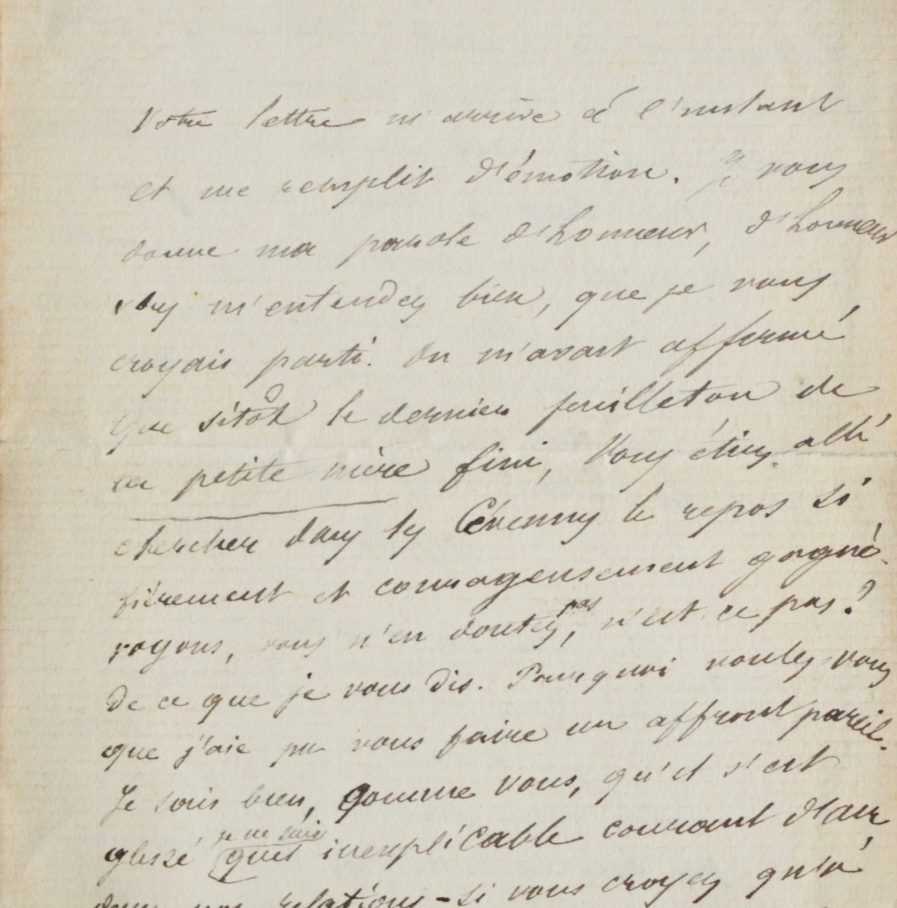 Votre lettre m'arrive à l'instant
et me remplit d'émotion. Je vous
donne ma parole d'honneur, d'honneur
vous m'entendez bien, que je vous
croyais parti. On m'avait affirmé
que sitôt le dernier feuilleton de
la petite mère fini, vous étiez allé
chercher dans les Cévennes le repos si
fièrement et courageusement gagné.
voyons, vous n'en doutez pas, n'est ce pas?
de ce que je vous dis. Pourquoi voulez-vous
que j'aie pu vous faire un affront pareil.
Je sais bien, comme vous, qu'il s'est
glissé je ne sais quel inexplicable courant d'air
dans nos relations - si vous croyez qu'il